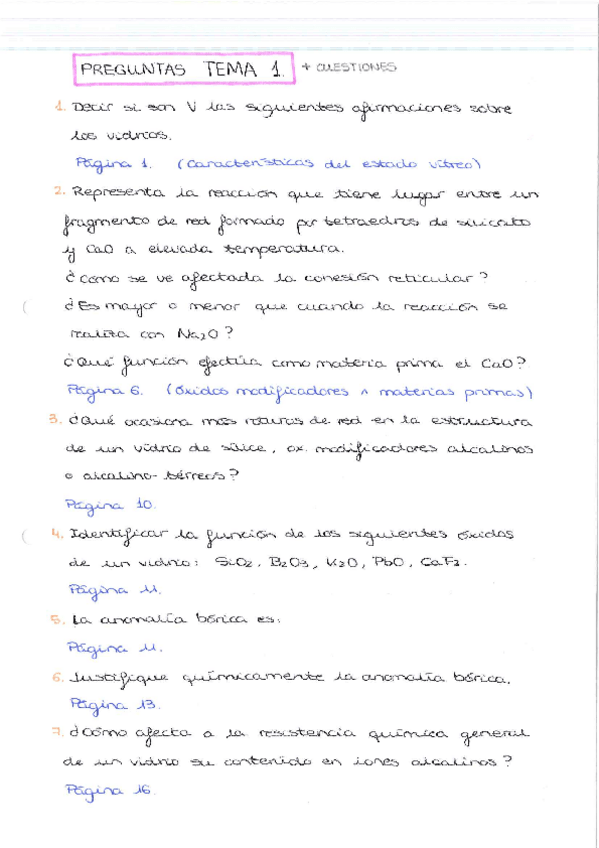 PREGUNTAS TEMA 1. + CUESTIONES
1. Decir si son V las siguientes afirmaciones sobre
los vidrios.
Página 1. (Características del estado vítreo)
2. Representa la reacción que tiene lugar entre un
fragmento de red formado por tetraedros de silicato
y CaO a elevada temperatura.
¿Cómo se ve afectada la conexión reticular?
¿Es mayor o menor que cuando la reacción se
realiza con Na2O?
¿Qué función efectúa como materia prima el CaO?
Página 6. (Óxidos modificadores ^ materias primas)
3. ¿Qué ocasiona más roturas de red en la estructura
de un vidrio de sílice, ox. modificadores alcalinos
o alcalino-térreos?
Página 10.
4. Identificar la función de los siguientes óxidos
de un vidrio: SiO2, B2O3, K2O, PbO, CaF2.
Página 11.
5. La anomalía bórica es:
Página 11.
6. Justifique químicamente la anomalía bórica.
Página 13.
7. ¿Cómo afecta a la resistencia química general
de un vidrio su contenido en iones alcalinos?
Página 16.